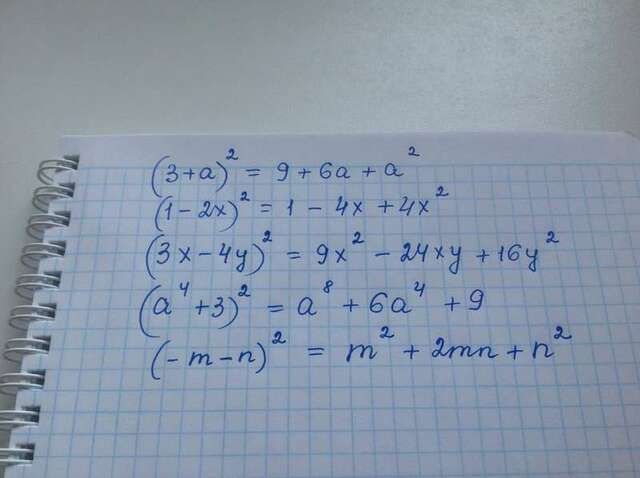 (3+a)² = 9 + 6a + a²
(1 - 2x)² = 1 - 4x + 4x²
(3x - 4y)² = 9x² - 24xy + 16y²
(a⁴ + 3)² = a⁸ + 6a⁴ + 9
(-m - n)² = m² + 2mn + n²